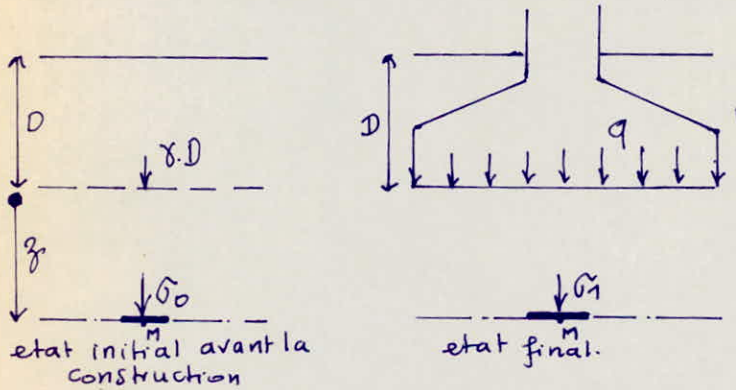 D
γ.D
z
σ0
M
etat initial avant la
construction
D
q
σ1
M
etat final.